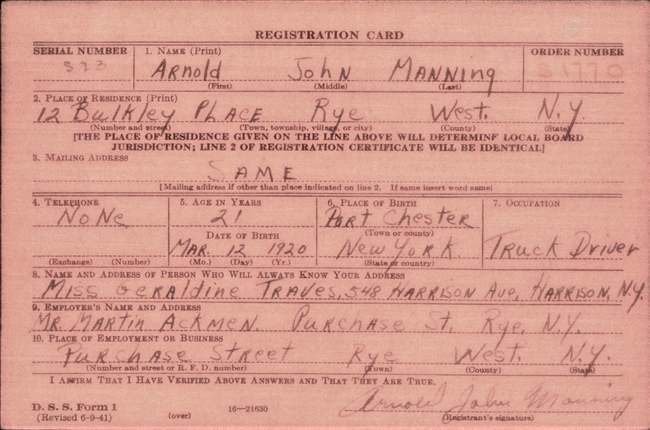 REGISTRATION CARD
SERIAL NUMBER 1. NAME (Print) ORDER NUMBER
Arnold John Manning
(First) (Middle) (Last)
2. PLACE OF RESIDENCE (Print)
12 Bulkley Place Rye West. N.Y.
(Number and street) (Town, township, village, or city) (County) (State)
[THE PLACE OF RESIDENCE GIVEN ON THE LINE ABOVE WILL DETERMINE LOCAL BOARD
JURISDICTION; LINE 2 OF REGISTRATION CERTIFICATE WILL BE IDENTICAL]
3. MAILING ADDRESS
SAME
[Mailing address if other than place indicated on line 2. If same insert word same]
4. TELEPHONE 5. AGE IN YEARS 6. PLACE OF BIRTH 7. OCCUPATION
None 21 Port Chester
DATE OF BIRTH (Town or county)
Mar. 12 1920 New York Truck Driver
(Exchange) (Number) (Mo.) (Day) (Yr.) (State or country)
8. NAME AND ADDRESS OF PERSON WHO WILL ALWAYS KNOW YOUR ADDRESS
Miss Geraldine Traves, 548 Harrison Ave, Harrison, N.Y.
9. EMPLOYER'S NAME AND ADDRESS
Mr. Martin Ackmen. Purchase St. Rye, N.Y.
10. PLACE OF EMPLOYMENT OR BUSINESS
Purchase Street Rye West. N.Y.
(Number and street or R. F. D. number) (Town) (County) (State)
I AFFIRM THAT I HAVE VERIFIED ABOVE ANSWERS AND THAT THEY ARE TRUE.
Arnold John Manning
D. S. S. Form 1 16—21630 (Registrant's signature)
(Revised 6-9-41) (over)